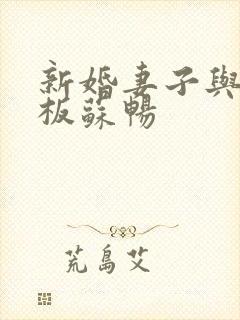 新婚妻子與
板蘇暢
荒島艾